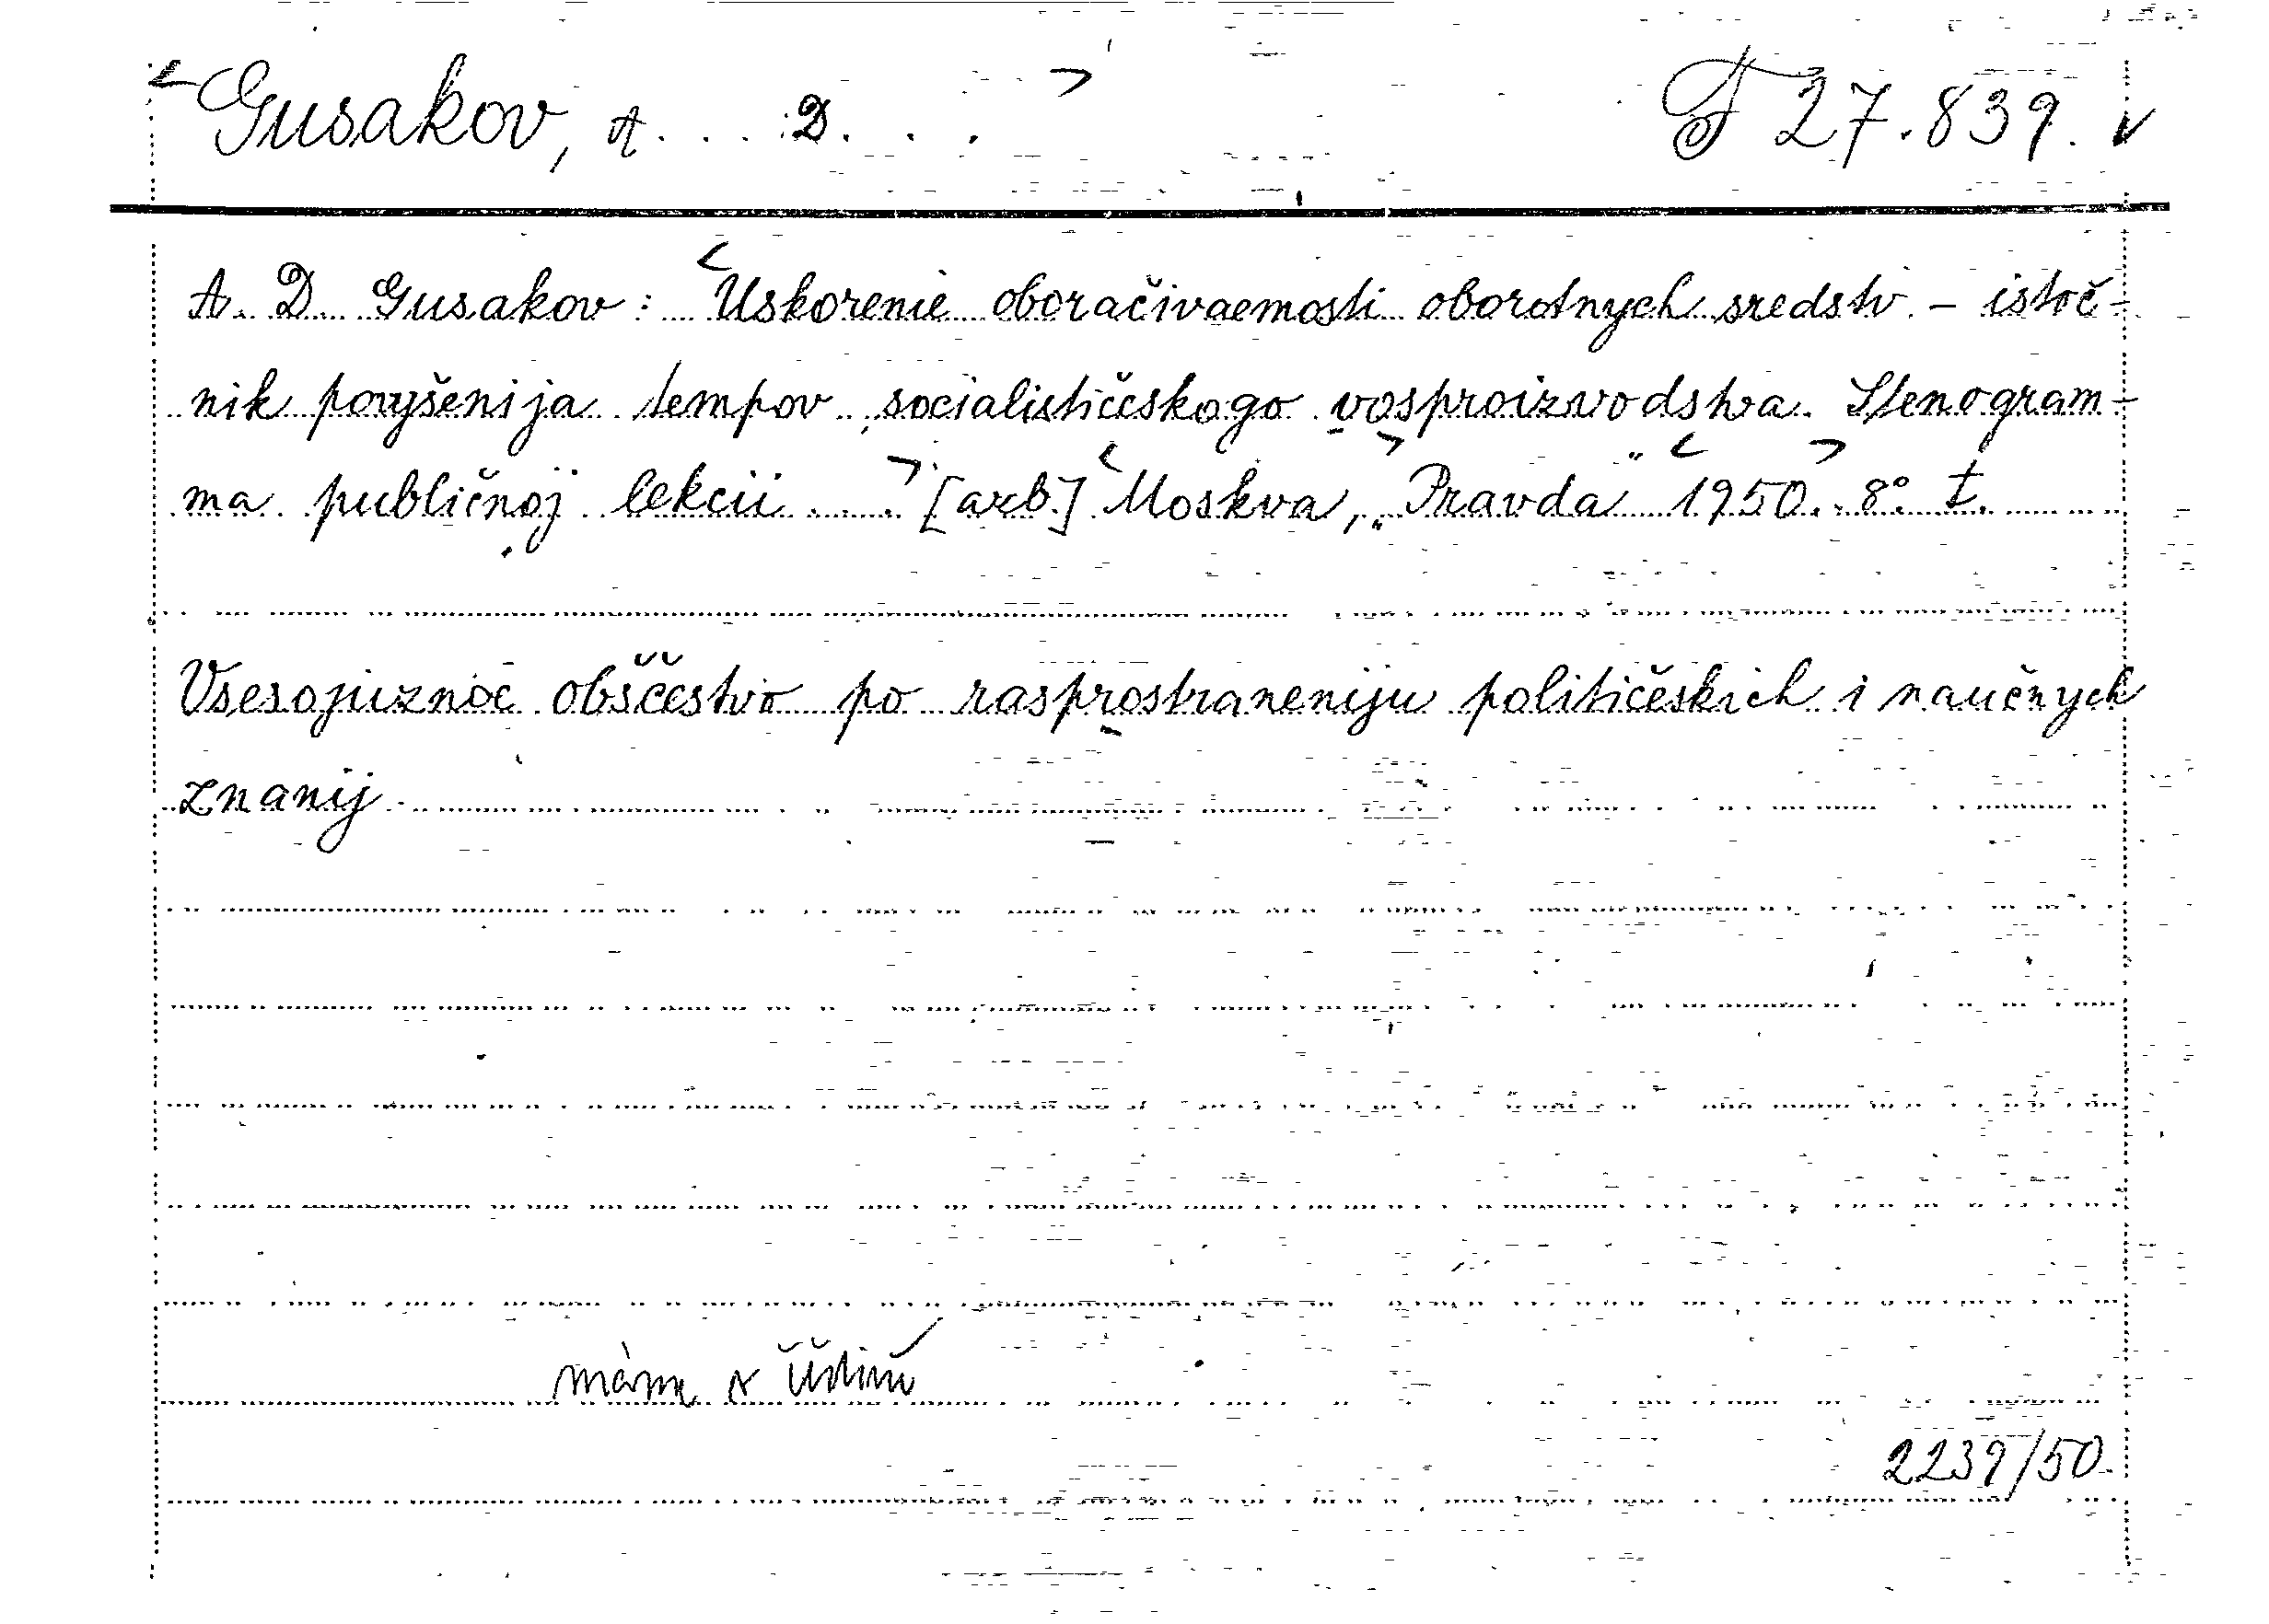 Gusakov, A . . . D. . . T 27.839.
A. D. Gusakov: Uskorenie oboračivaemosti oborotnych sredstv. – istoč-
nik povyšenija tempov socialističeskogo vosproizvodstva. Stenogram-
ma publičnoj lekcii . . . [arb.] Moskva, „Pravda" 1950. 8°.
Vsesojuznoe obščestvo po rasprostraneniju političeskich i naučnych
znanij
máme v
2239/50.